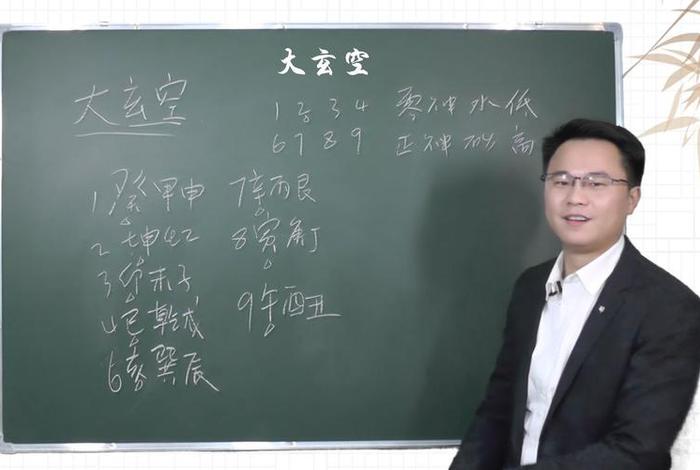 大玄空
大玄空
1 2 3 4 零神水低
6 7 8 9 正神砂高
1 癸甲申
7 辛丙艮
2 坤
8 寅庚丁
3 卯未子
4 巳乾戌
9 午酉丑
6 亥巽辰